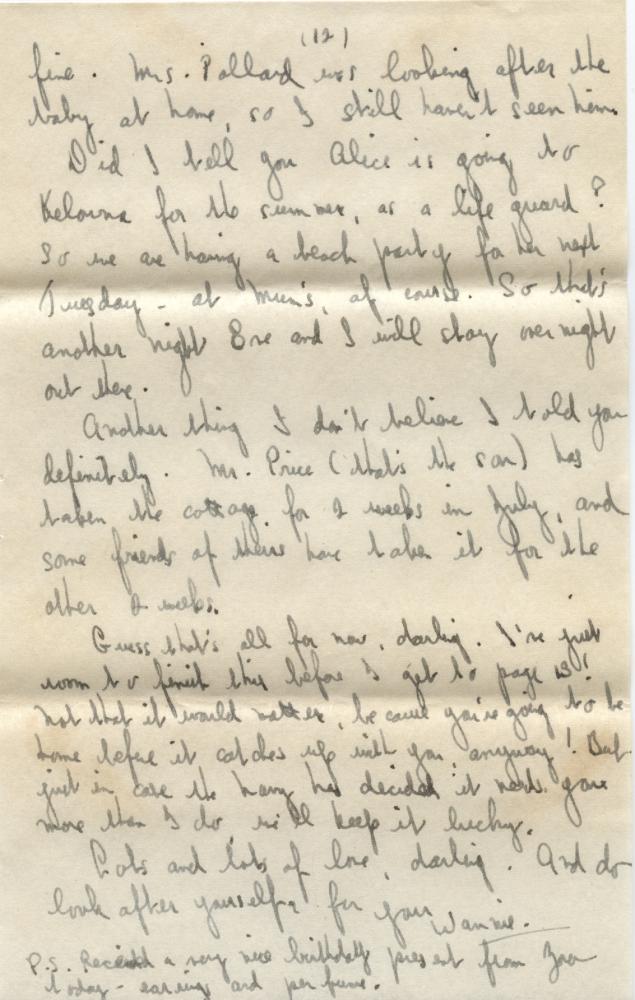 (12)
fine. Mrs. Pollard was looking after the
baby at home, so I still haven't seen him.
Did I tell you Alice is going to
Kelowna for the summer, as a life guard?
So we are having a beach party for her next
Tuesday - at Mum's, of course. So that's
another night Eve and I will stay overnight
out there.
Another thing I don't believe I told you
definitely. Mr. Price (that's the son) has
taken the cottage for 2 weeks in July, and
some friends of theirs have taken it for the
other 2 weeks.
Guess that's all for now, darling. I've just
room to finish this before I get to page 13!
Not that it would matter, because you're going to be
home before it catches up with you, anyway! But
just in case the Navy has decided it needs you
more than I do, we'll keep it lucky.
Lots and lots of love, darling. And do
look after yourself, for your
P.S. Received a very nice birthday present from
today - earrings and perfume.